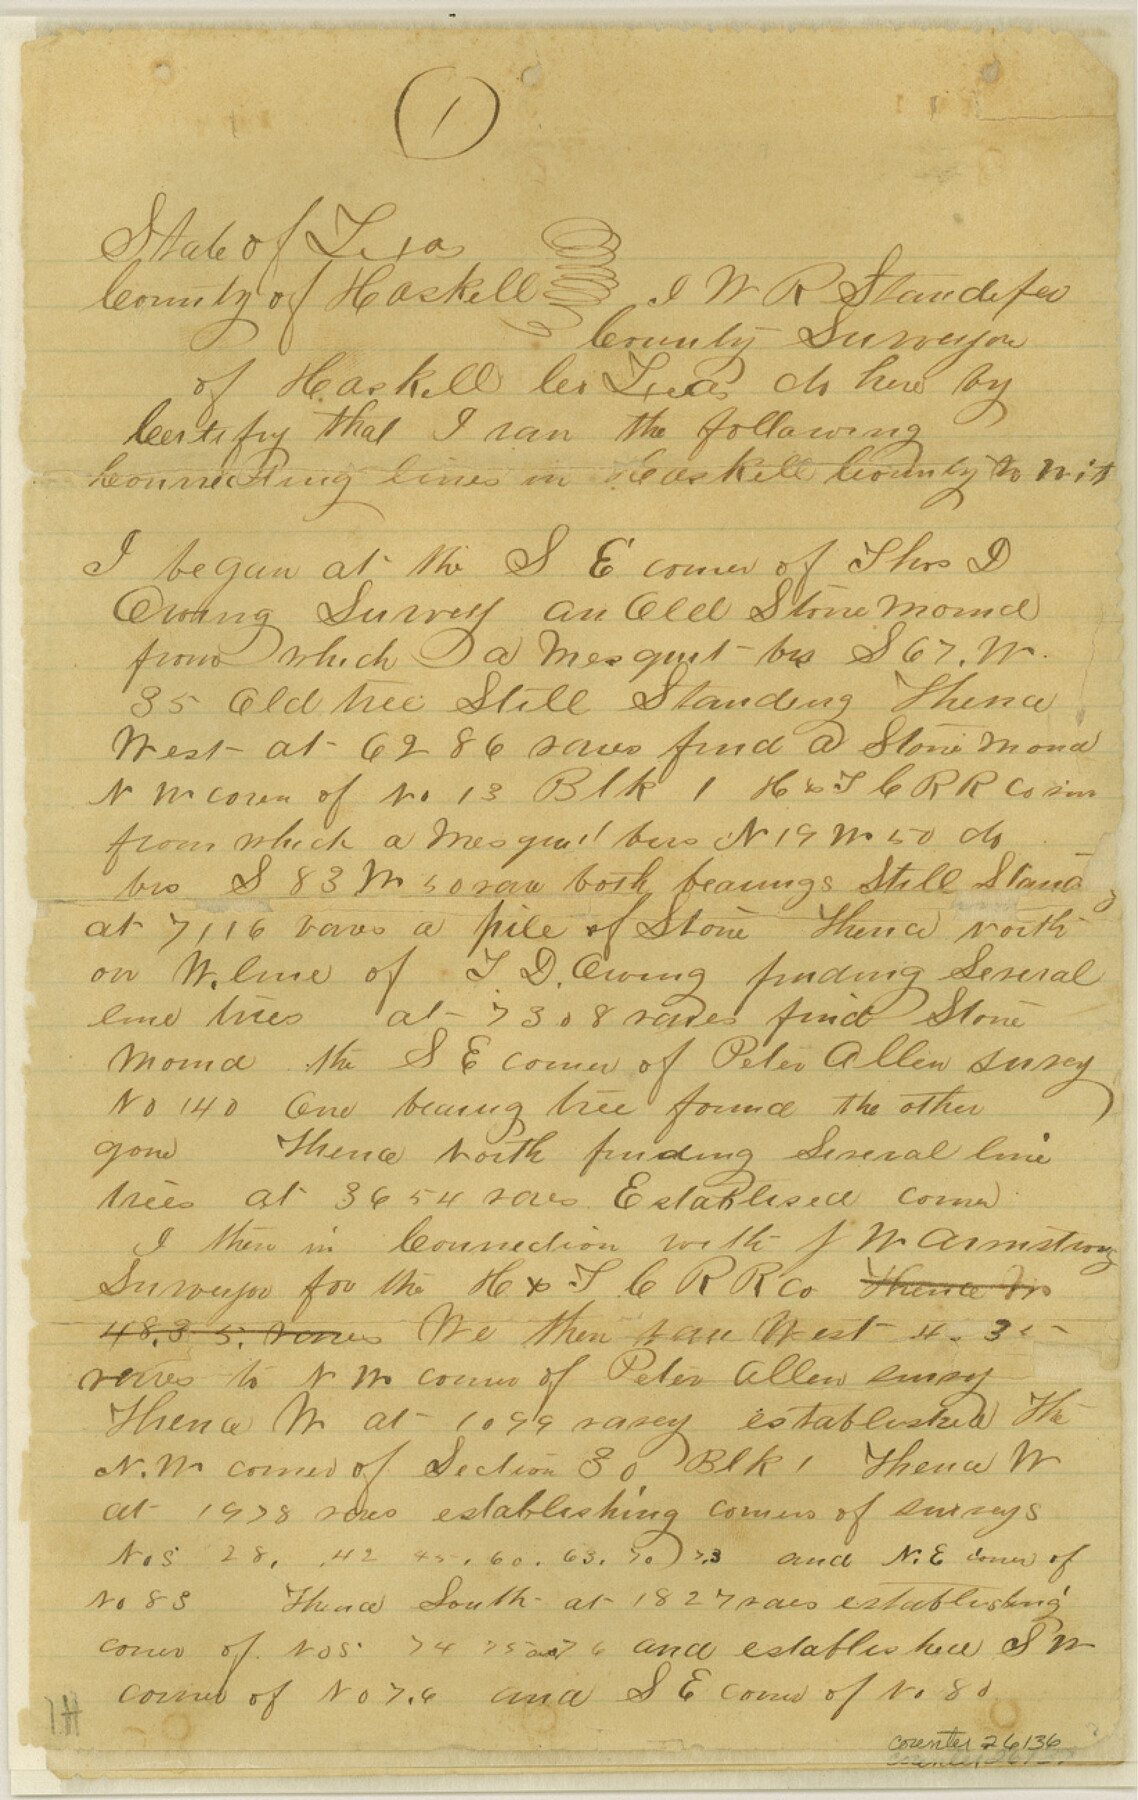 1
State of Texas
County of Haskell I W R Standefer
County Surveyor
of Haskell Co Texas do here by
Certify that I ran the following
Connecting lines in Haskell County to wit
I began at the S E corner of Thos D
Owing Survey an Old Stone Mound
from which a Mesquit brs S 67. W.
35 Old tree Still Standing Thence
West at 6286 varas find a Stone Mound
N W coren of No 13 Blk 1 H & T C R R Co
from which a Mesquit brs N 19 W 50 do
brs S 83 W 50 vars both bearings Still Stand
at 7116 vares a pile of Stone Thence North
on W. line of T. D. Owing finding Several
line trees at 7308 vares find Stone
Mound the S E corner of Peter Allen survey
No 140 One bearing tree found the other
gone Thence North finding Several line
trees at 3654 vares Establised corner
I then in Connection with J W Armstrong
Surveyor for the H & T C R R Co Thence
48.35. vares We then ran West
vares to N W corner of Peter Allen survy
Thence W at 1099 varas established the
N. W corner of Section 30 Blk 1 Thence W
at 1978 vares establishing corners of surveys
Nos 28. 42 45. 60. 63. 70 73 and N. E corner of
No 83 Thence South at 1827 varas establishing
corner of Nos 74 75 and 76 and established S W
corner of No 76 and S E corner of No 80
counter 26136